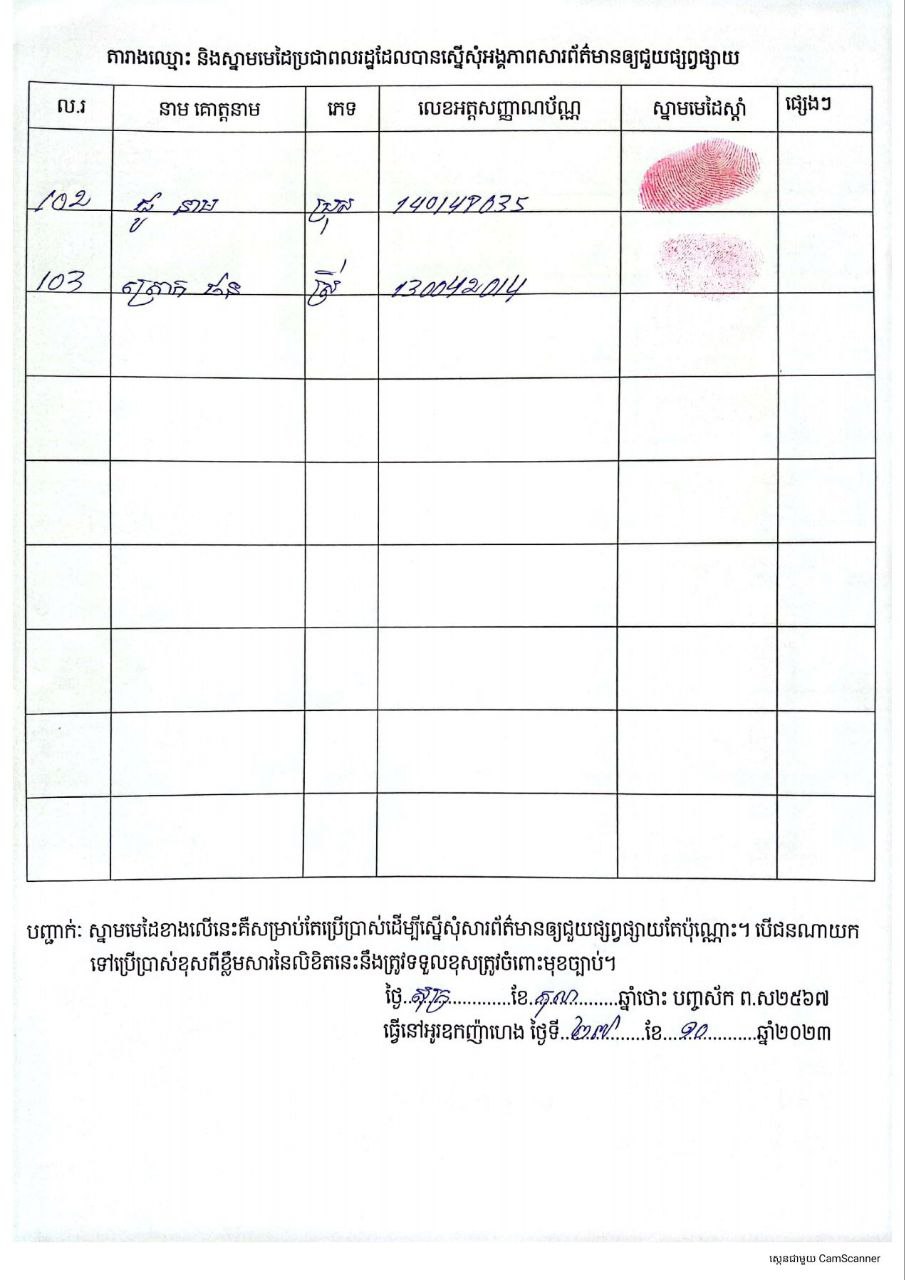 តារាងឈ្មោះ និងស្នាមមេដៃប្រជាពលរដ្ឋដែលបានស្នើសុំអង្គភាពសារព័ត៌មានឲ្យជួយផ្សព្វផ្សាយ
ល.រ នាម គោត្តនាម ភេទ លេខអត្តសញ្ញាណប័ណ្ណ ស្នាមមេដៃស្តាំ ផ្សេងៗ
102 នាម ប្រុស
103 ស្រី 130042014
បញ្ជាក់: ស្នាមមេដៃខាងលើនេះគឺសម្រាប់តែប្រើប្រាស់ដើម្បីស្នើសុំសារព័ត៌មានឲ្យជួយផ្សព្វផ្សាយតែប៉ុណ្ណោះ។ បើជនណាយក
ទៅប្រើប្រាស់ខុសពីខ្លឹមសារនៃលិខិតនេះនឹងត្រូវទទួលខុសត្រូវចំពោះមុខច្បាប់។
ថ្ងៃ..សុក្រ............ខែ.តុលា.........ឆ្នាំថោះ បញ្ចស័ក ព.ស២៥៦៧
ធ្វើនៅអូរឧកញ៉ាហេង ថ្ងៃទី..២៧.........ខែ....១០...........ឆ្នាំ២០២៣
ស្កេនជាមួយ CamScanner